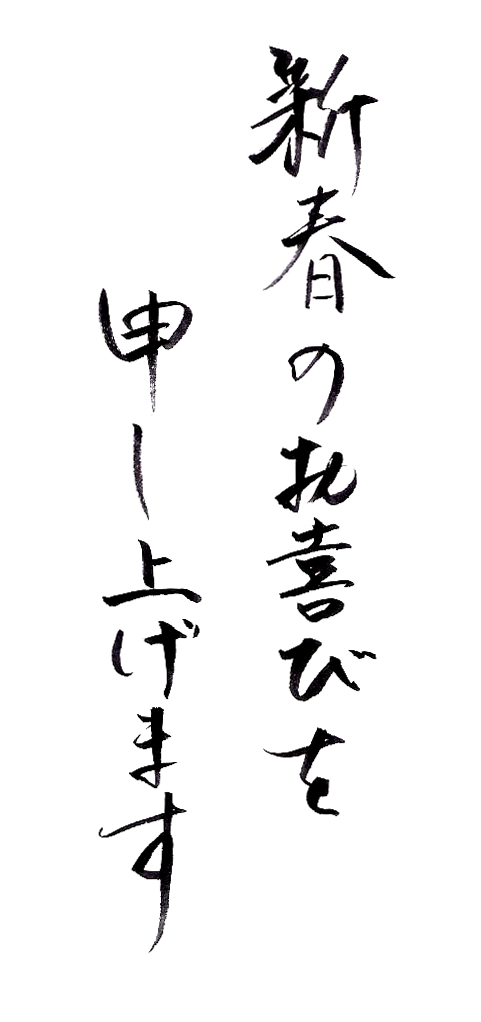 新春のお喜びを
申し上げます